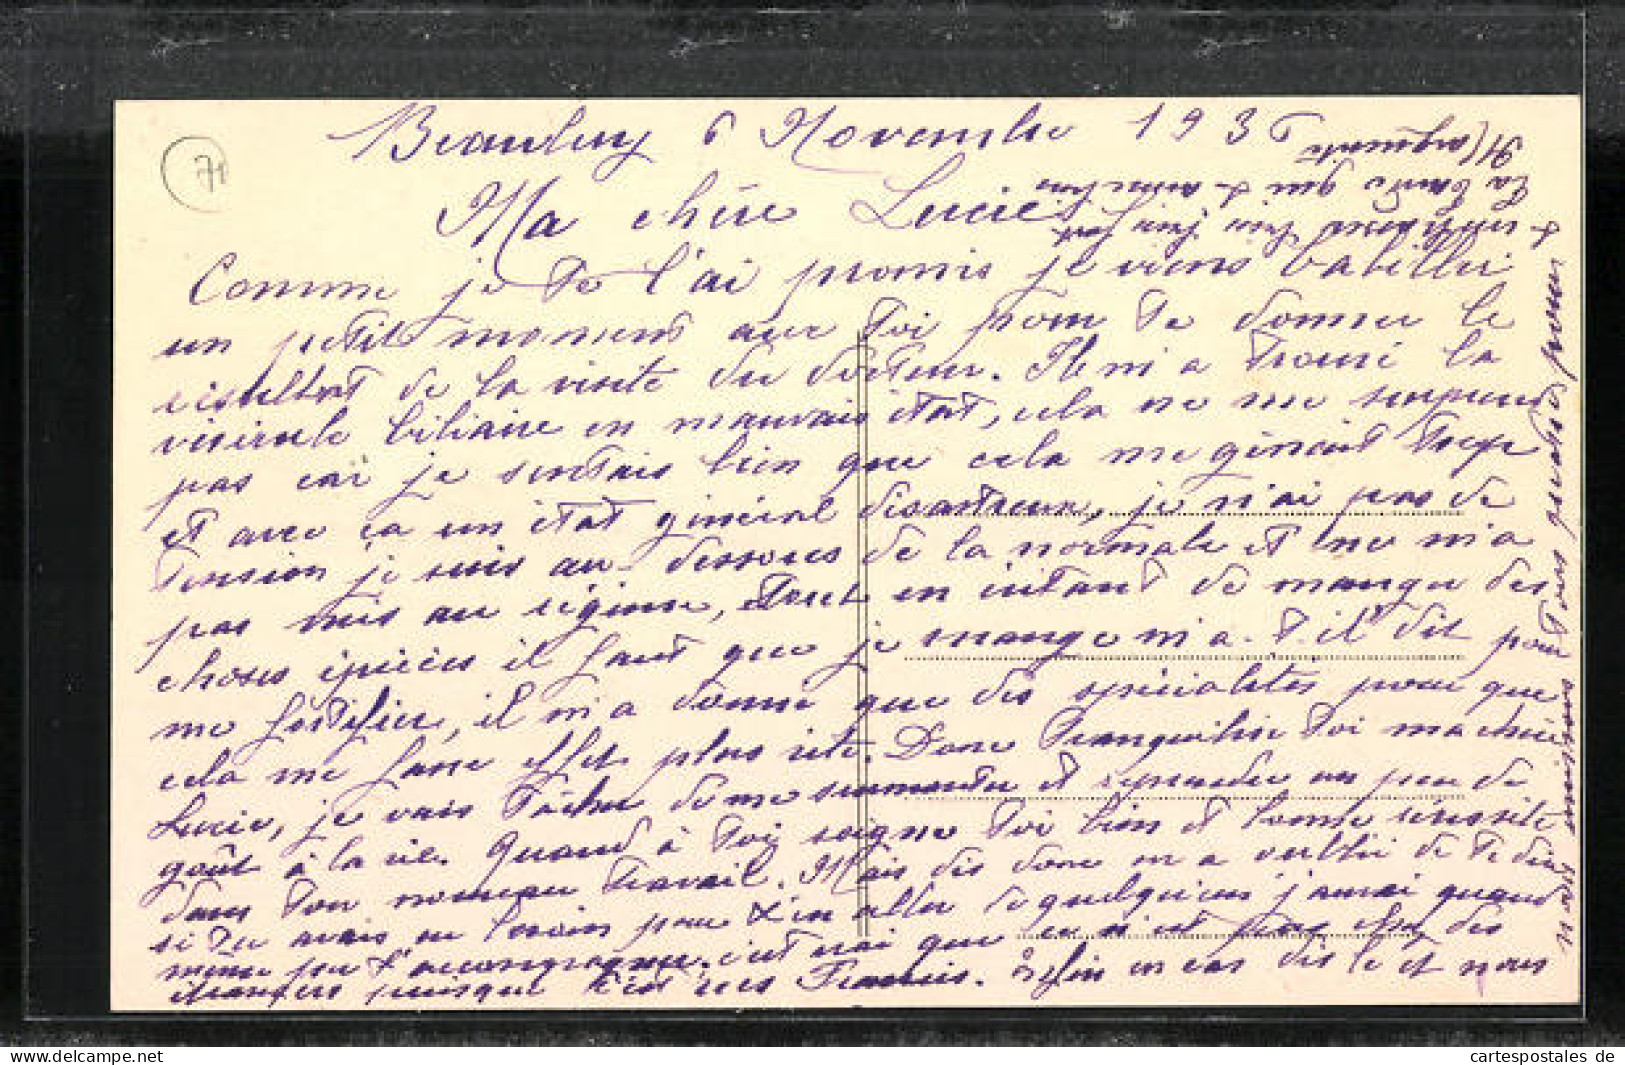 71
6 Novembre 193
Ma chère Lucie
Comme je te l'ai promis je viens babiller
un petit moment avec toi pour te donner le
résultat de la visite du docteur. Il m'a trouvé la
vésicule biliaire en mauvais état, cela ne me surprend
pas car je sentais bien que cela me gênait trop
et avec ça un état général désastreux, je n'ai pas de
tension je suis au dessous de la normale et ne m'a
pas mis au régime, tout en évitant de manger des
choses épicées il faut que je mange m'a-t-il dit pour
me fortifier, il m'a donné que des spécialités pour que
cela me fasse effet plus vite. Donc tranquilise toi ma chère
Lucie, je vais tâcher de me remonter et reprendre un peu de
goût à la vie. Quand à toi soigne toi bien et bonne réussite
dans ton nouveau travail. Mais dis donc m'a de te dire
si tu avais eu besoin pour t'en aller de quelqu'un j'aurai quand
même pu t'accompagner, c'est vrai que ce n'est pas chez des
étrangers puisque c'est Francis. Enfin en cas dis le et nous
nous pour
La tante qui t'
Marguerite
cartespostales de